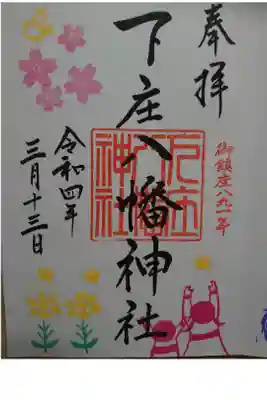 奉拝
御鎮座八九一年
下庄八幡神社
下庄八幡神社
令和四年
三月十三日